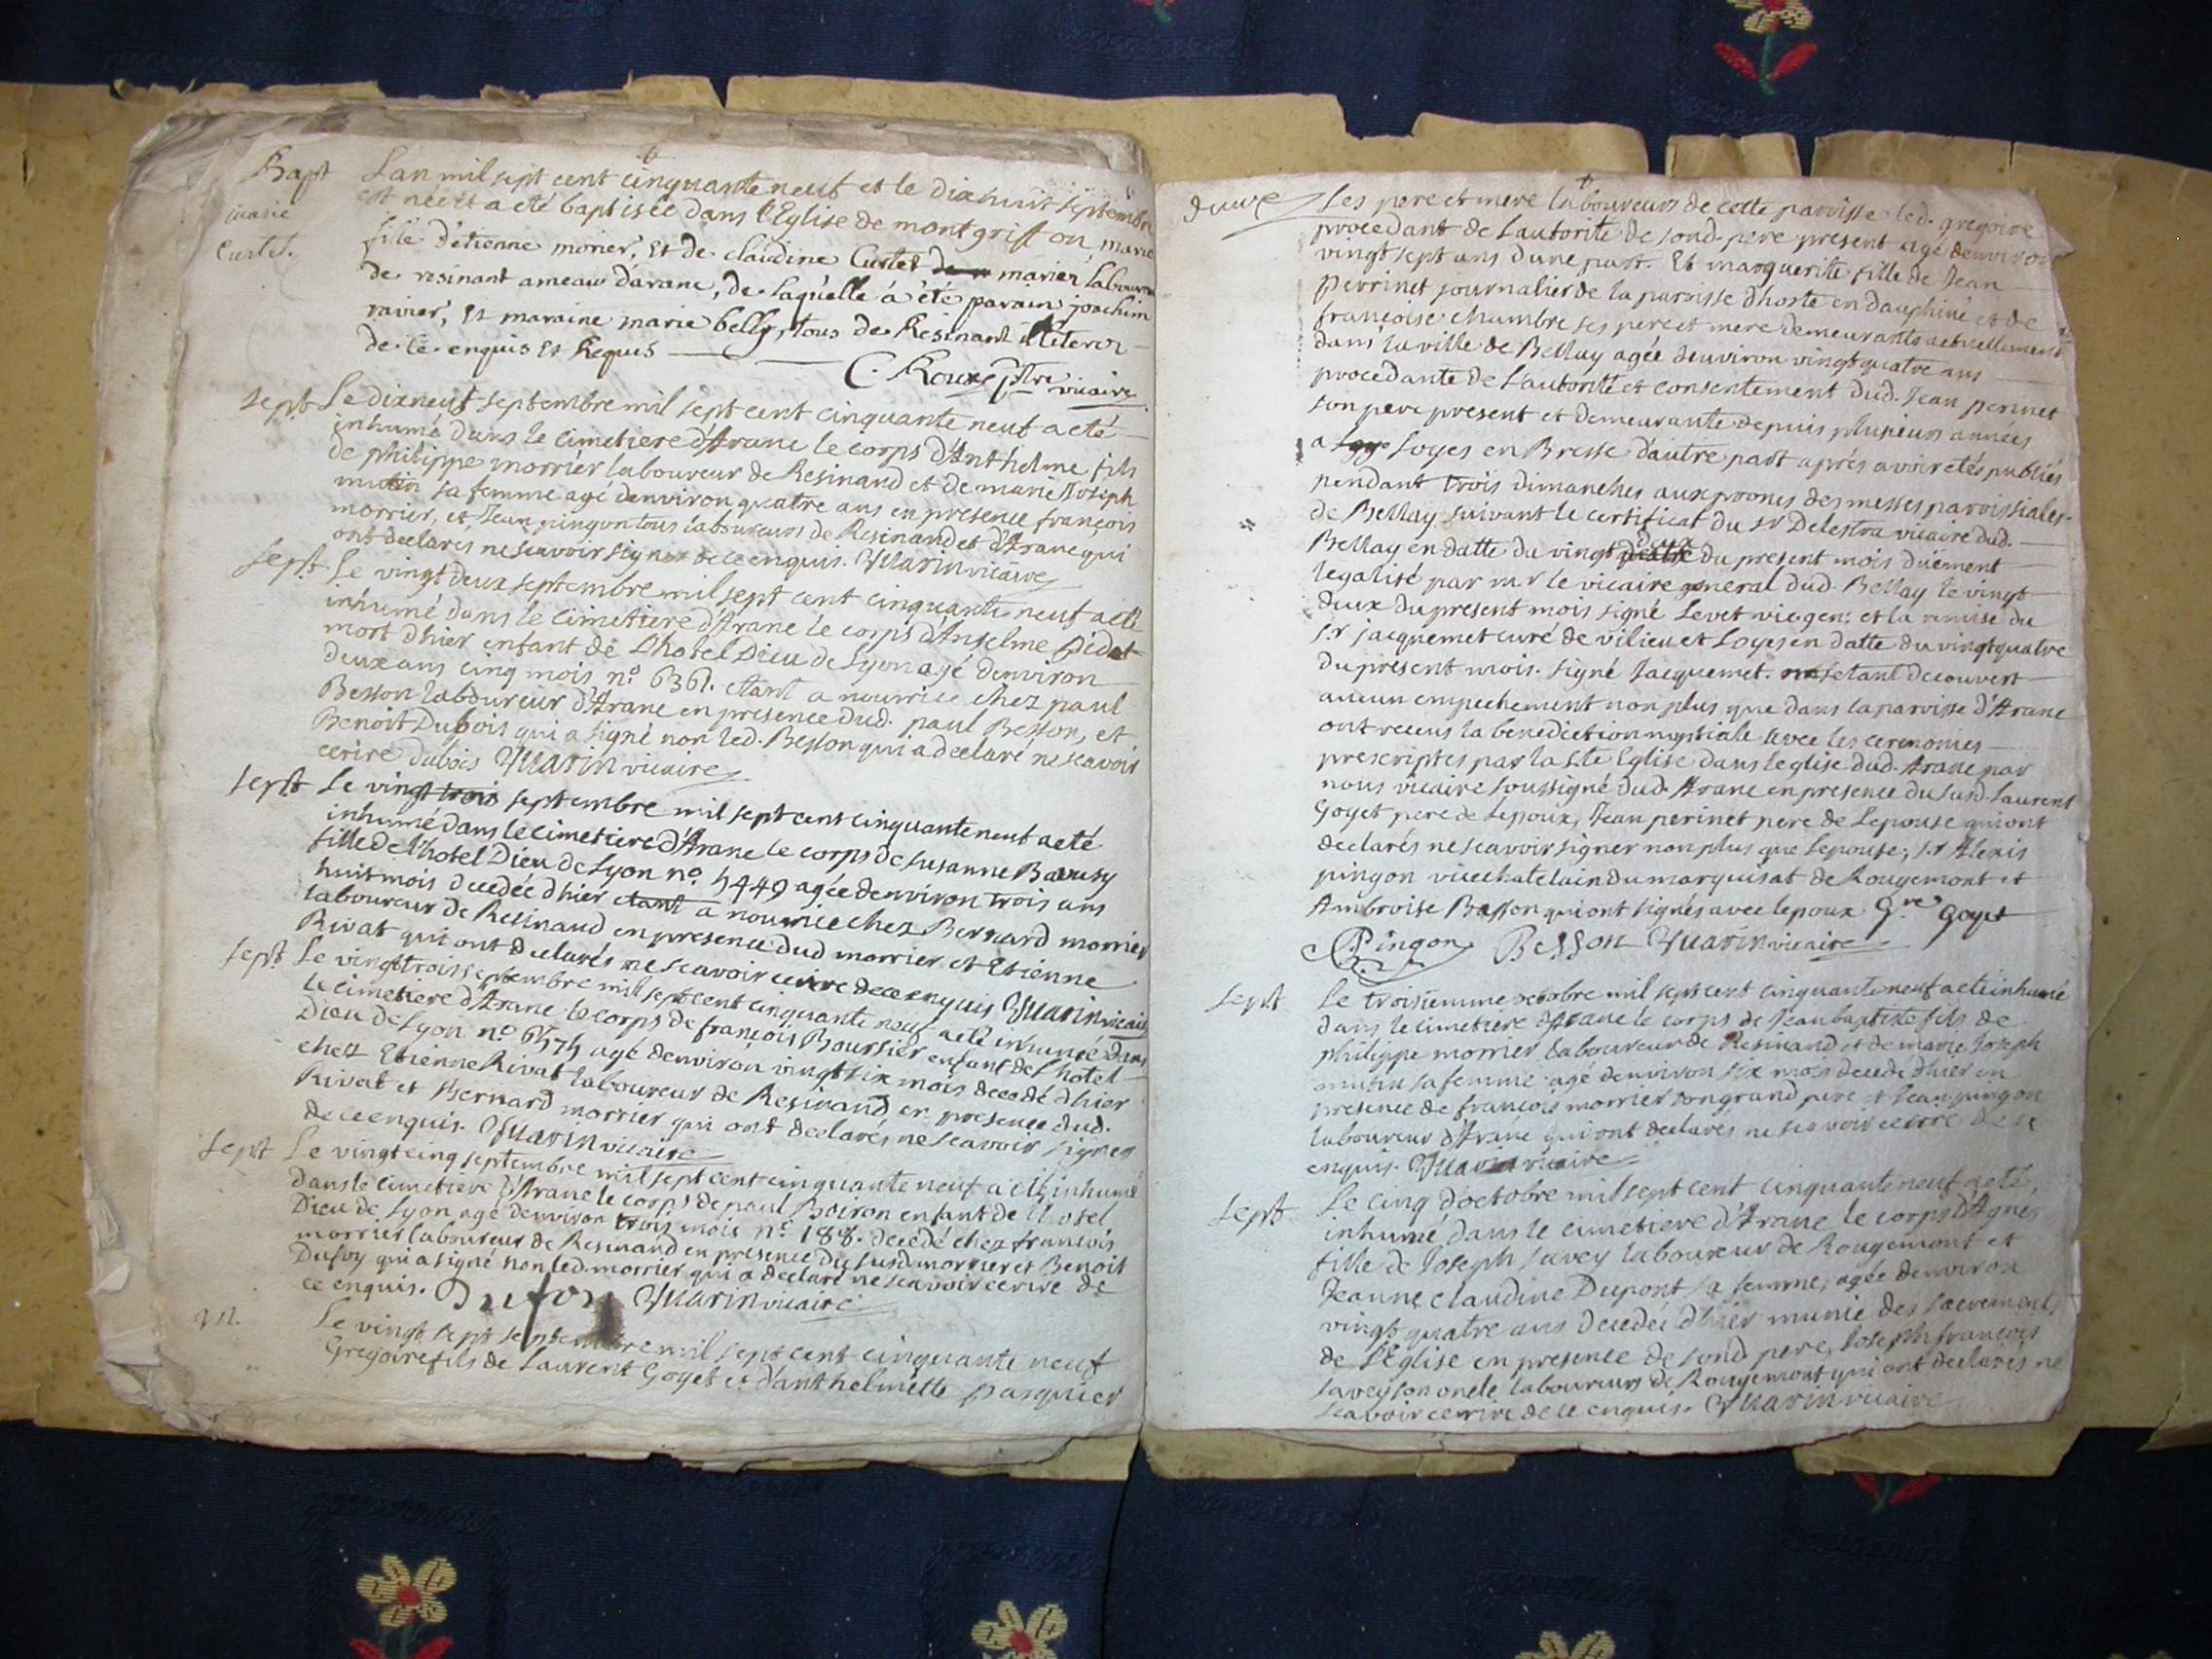 Bapt
marie
Curtet.
Lan mil sept cent cinquante neuf et le dixhuit septembre
est néé et a eté baptisée dans l'Eglise de montgriffon marie
fille d'étienne morier, Et de claudine Curtet mariez laboureurs
de resinant ameau d'arane, de laquelle á été parain joachim
ravier, Et maraine marie belly, tous de Resinant illiterez
de ce enquis Et Requis
C. Roux ptre vicaire
sept Le dixneuf septembre mil sept cent cinquante neuf a eté
inhumé dans le cimetiere d'Arane le corps d'Anthelme fils
de philippe morrier laboureur de Resinand et de marie Joseph
mutin sa femme agé denviron quatre ans en presence françois
morrier, et Jean pingon tous laboureurs de Resinand et d'Arane qui
ont declarés ne scavoir signer de ce enquis. Yuarin vicaire
sept Le vingt deux septembre mil sept cent cinquante neuf a eté
inhumé dans le cimetiere d'Arane le corps d'Anselme Dédat
mort d'hier enfant de L'hotel Dieu de Lyon agé denviron
deux ans cinq mois n.o 6361. etant a nourrice chez paul
Besson laboureur d'Arane en presence dud. paul Besson, et
Benoit Dubois qui a signé non led. Besson qui a declaré ne scavoir
ecrire dubois Yuarin vicaire
sept Le vingt trois septembre mil sept cent cinquante neuf a eté
inhumé dans le cimetiere d'Arane le corps de Susanne Bavusy
fille de l'hotel Dieu de Lyon n.o 5449 agée denviron trois ans
huit mois decedée d'hier etant a nourrice chez Bernard morrier
laboureur de Resinand en presence dud morrier et Etienne
Rivat qui ont declarés ne scavoir ecrire de ce enquis Yuarin vicaire
sept Le vingt trois septembre mil sept cent cinquante neuf a eté inhumé dans
le cimetiere d'Arane le corps de françois Boursier enfant de L'hotel
Dieu de Lyon n.o 6575 agé denviron vingt six mois decedé d'hier
chez Etienne Rivat laboureur de Resinand en presence dud.
Rivat et Bernard morrier qui ont declarés ne scavoir signer
de ce enquis. Yuarin vicaire
sept Le vingt cinq septembre mil sept cent cinquante neuf a eté inhumé
dans le cimetiere d'Arane le corps de paul Boiron enfant de l'hotel
Dieu de Lyon agé denviron trois mois n.o 188. decedé chez francois
morrier laboureur de Resinand en presence du susd. morrier et Benoit
Dufoy qui a signé non led. morrier qui a declaré ne scavoir ecrire de
ce enquis. Dufoy Yuarin vicaire
M. Le vingt sept septembre mil sept cent cinquante neuf
Gregoire fils de Laurent Goyet et d'anthelmette pasquier
Ses pere et mere laboureurs de cette paroisse led. gregoire
procedant de Lautorité de sond. pere present agé denviron
vingt sept ans d'une part. Et marguerite fille de Jean
Perrinet journalier de la paroisse d'hoste en dauphiné et de
françoise chambre ses pere et mere demeurants actuellement
dans la ville de Bellay agée denviron vingt quatre ans
procedante de Lautorité et consentement dud. Jean perinet
son pere present et demeurante depuis plusieurs années
a Loyes en Bresse d'autre part aprés avoir etés publiés
pendant trois dimanches aux prones des messes paroissiales
de Bellay suivant le certificat du sr Delestra vicaire dud.
Bellay en datte du vingt deux du present mois duëment
legalisé par mr le vicaire general dud. Bellay le vingt
deux du present mois signé Levet vic. gen: et la remise du
s.r jacquemet curé de vilieu et Loyes en datte du vingt quatre
du present mois. signé Jacquemet. setant decouvert
aucun empechement non plus que dans la paroisse d'Arane
ont receus la benediction nuptiale avec les ceremonies
prescriptes par la Ste Eglise dans leglise dud. Arane par
nous vicaire soussigné dud. Arane en presence du susd. Laurent
Goyet pere de Lepoux, Jean perinet pere de Lepouse qui ont
declarés ne scavoir signer non plus que Lepouse; s.r Alexis
pingon vicechatelain du marquisat de Rougemont et
Ambroise Besson qui ont signés avec lepoux G.re Goyet
Pingon Besson Yuarin vicaire
sept Le troisiemme octobre mil sept cent cinquante neuf a eté inhumé
dans le cimetiere d'Arane le corps de Jean baptiste fils de
philippe morrier laboureur de Resinand et de marie Joseph
mutin sa femme agé denviron six mois decedé d'hier en
presence de françois morrier son grand pere et Jean pingon
laboureur d'Arane qui ont declarés ne scavoir ecrire de ce
enquis. Yuarin vicaire
sept Le cinq d'octobre mil sept cent cinquante neuf a eté
inhumé dans le cimetiere d'Arane le corps d'Agnes
fille de Joseph savey laboureur de Rougemont et
Jeanne claudine Dupont sa femme, agée denviron
vingt quatre ans decedée d'hier munie des sacrements
de L'Eglise en presence de sond pere, Joseph françois
savey son oncle laboureurs de Rougemont qui ont declarés ne
scavoir ecrire de ce enquis. Yuarin vicaire